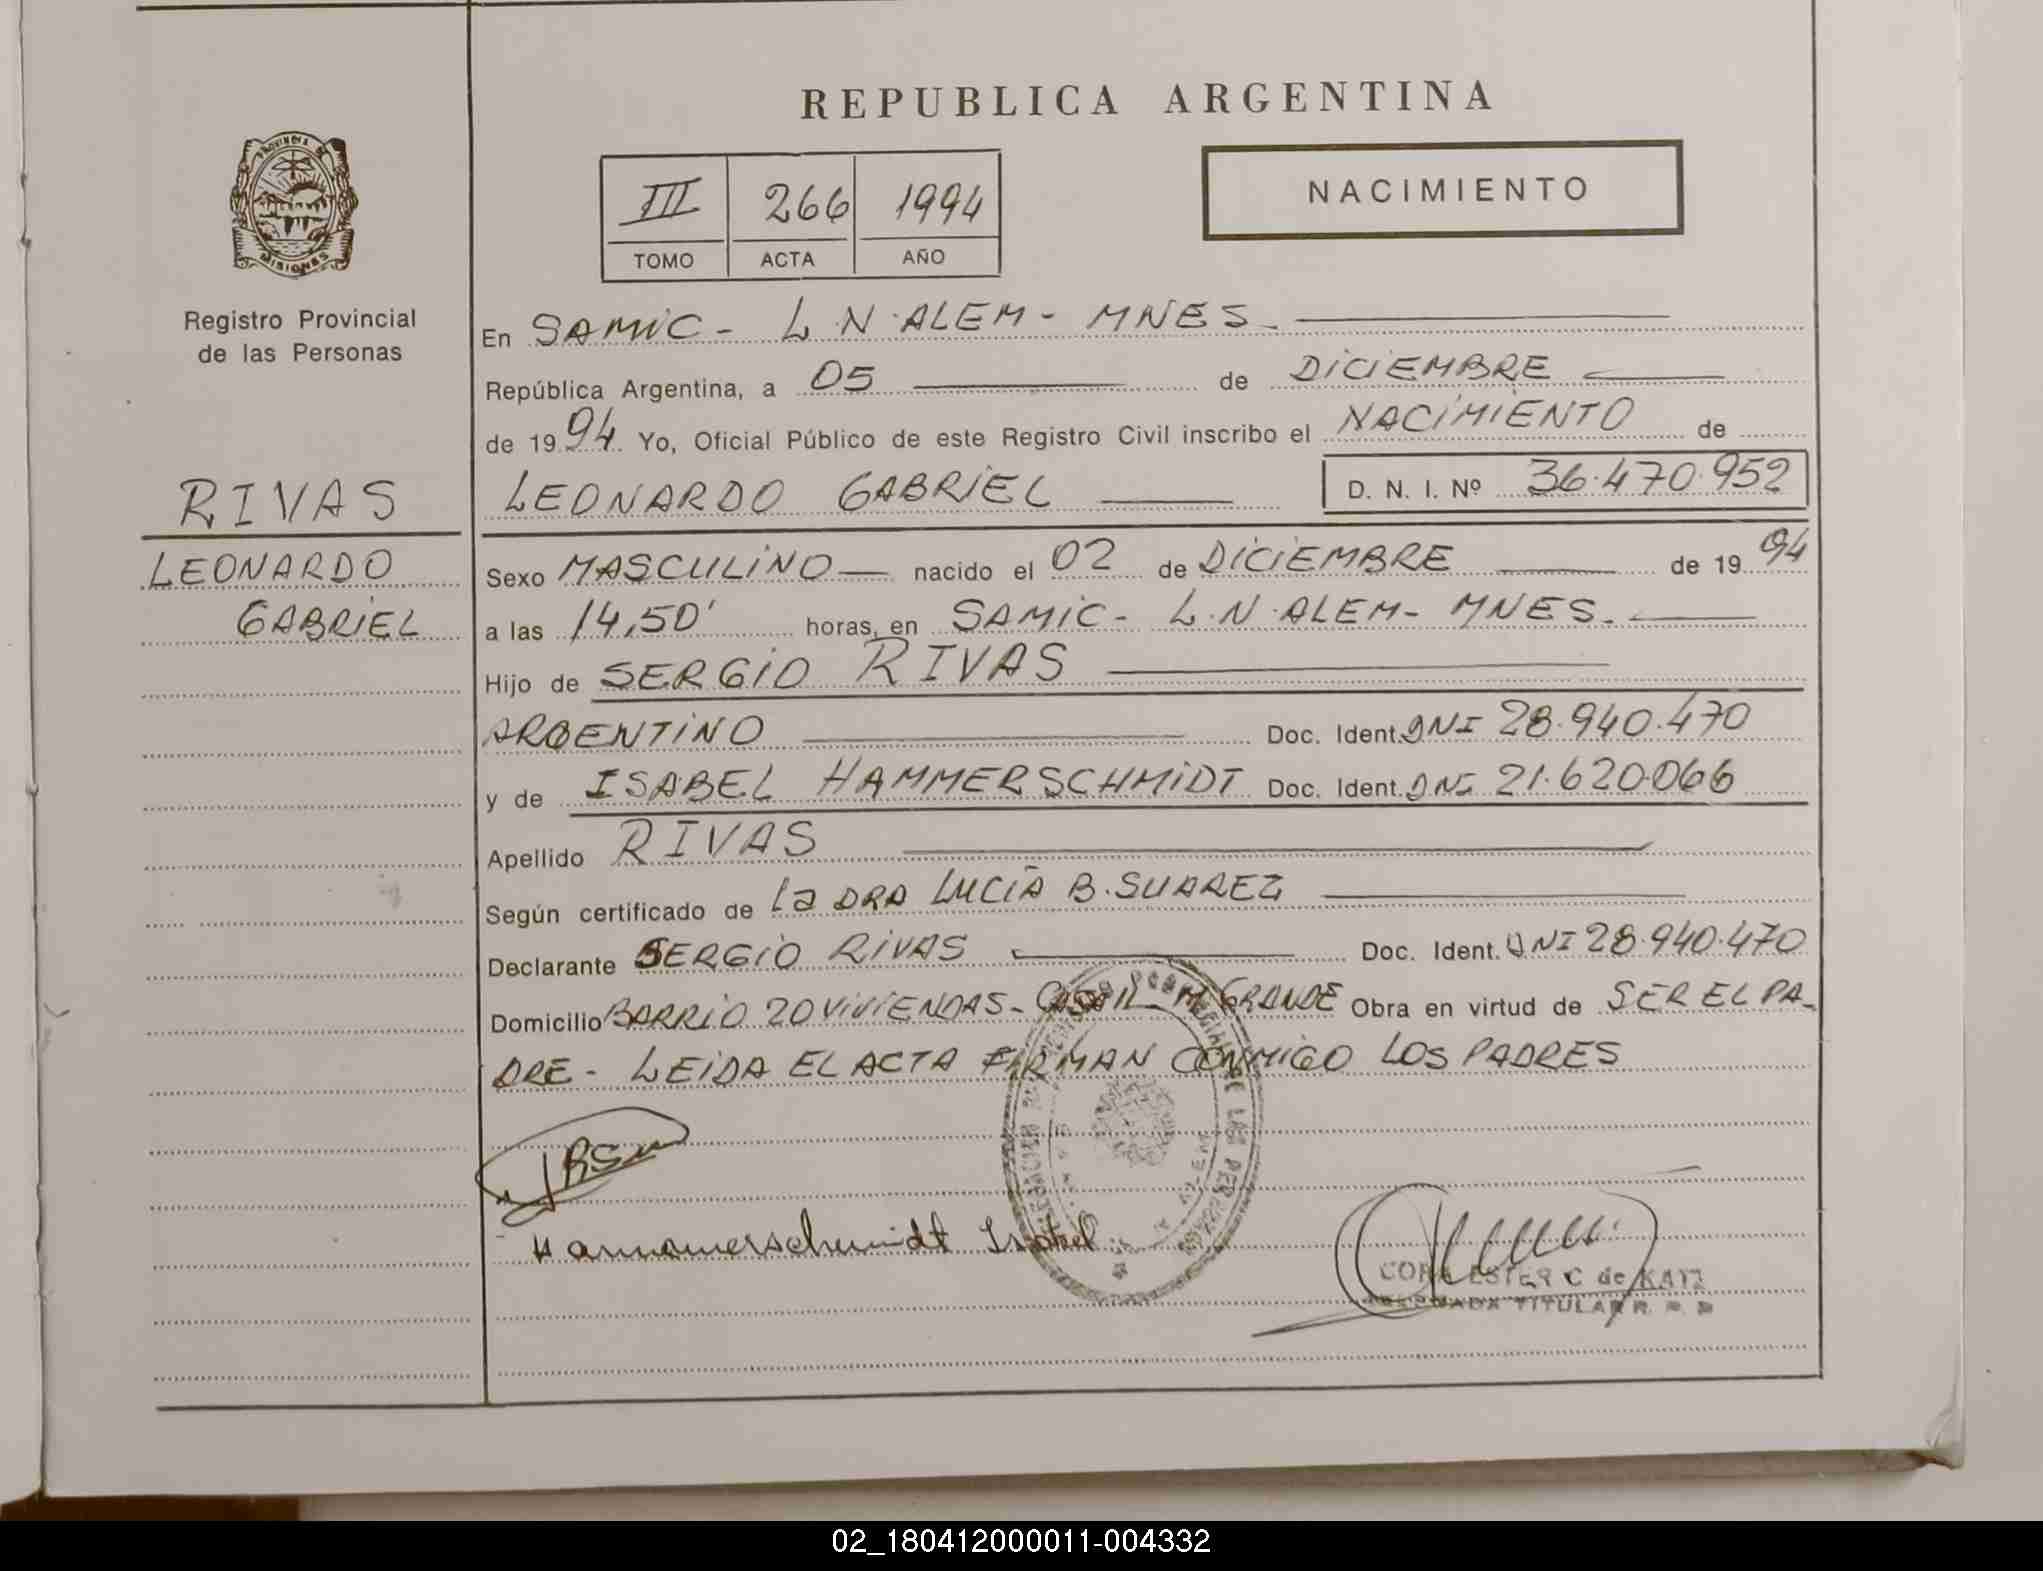 REPUBLICA ARGENTINA
PROVINCIA DE
MISIONES
Registro Provincial
de las Personas
III 266 1994
TOMO ACTA AÑO
NACIMIENTO
En SAMIC - L.N.ALEM - MNES.
República Argentina, a 05 de DICIEMBRE
de 1994. Yo, Oficial Público de este Registro Civil inscribo el NACIMIENTO de
LEONARDO GABRIEL D. N. I. Nº 36.470.952
RIVAS
LEONARDO
GABRIEL
Sexo MASCULINO nacido el 02 de DICIEMBRE de 1994
a las 14,50' horas, en SAMIC - L.N.ALEM - MNES.
Hijo de SERGIO RIVAS
ARGENTINO Doc. Ident. DNI 28.940.470
y de ISABEL HAMMERSCHMIDT Doc. Ident. DNI 21.620.066
Apellido RIVAS
Según certificado de la DRA LUCIA B. SUAREZ
Declarante SERGIO RIVAS Doc. Ident. DNI 28.940.470
Domicilio BARRIO 20 VIVIENDAS - GRANDE Obra en virtud de SER EL PA-
DRE - LEIDA EL ACTA FIRMAN CONMIGO LOS PADRES
Hammerschmidt Isabel
ESTER C de KATZ
TITULAR
02_180412000011-004332